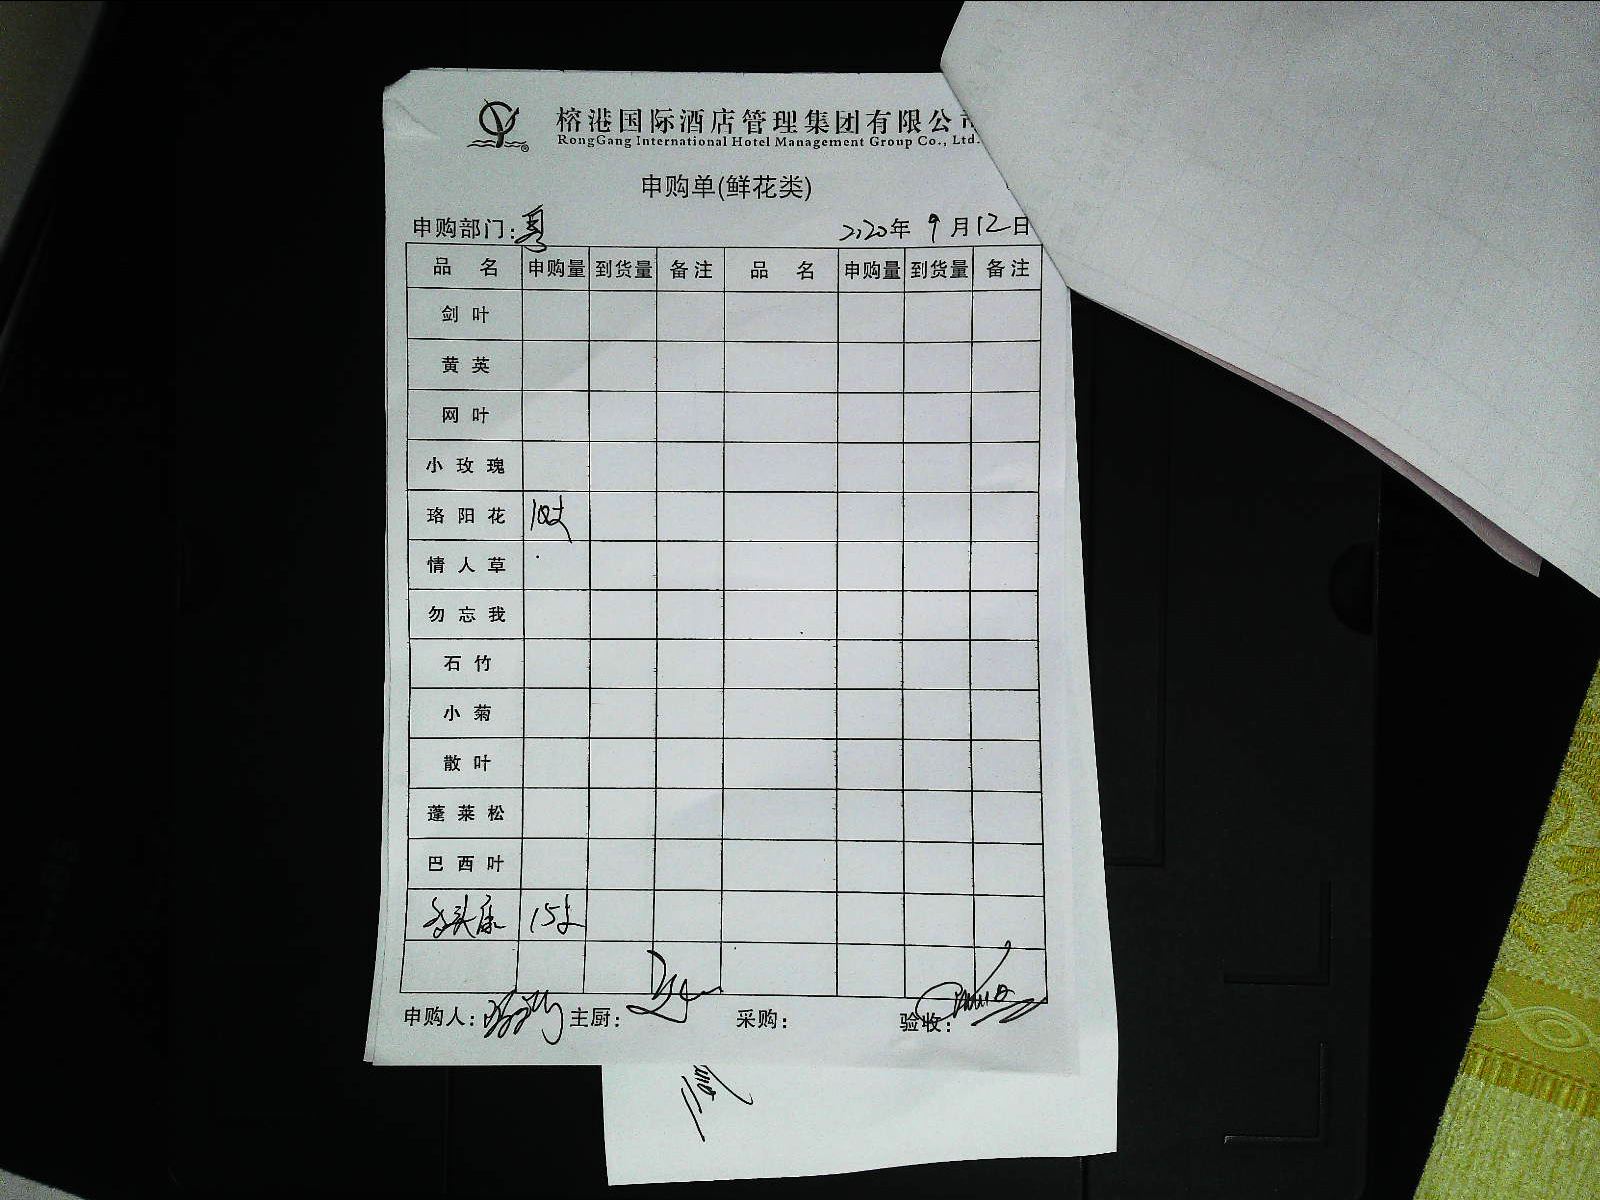 榕港国际酒店管理集团有限公司
RongGang International Hotel Management Group Co., Ltd.
申购单(鲜花类)
申购部门:
2020年 9月12日
品名 申购量 到货量 备注 品名 申购量 到货量 备注
剑叶
黄英
网叶
小玫瑰
珞阳花 10支
情人草
勿忘我
石竹
小菊
散叶
蓬莱松
巴西叶
多头康 15支
申购人: 主厨: 采购: 验收: